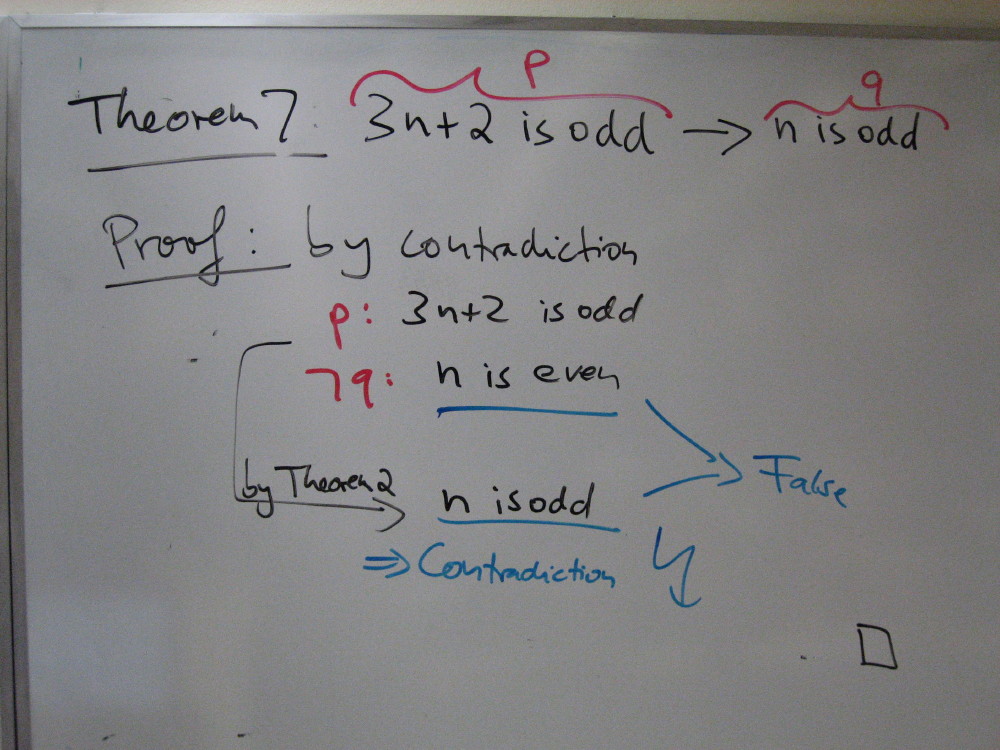 p q
Theorem 7: 3n+2 is odd → n is odd
Proof: by contradiction
p: 3n+2 is odd
¬q: n is even
False
by Theorem 2 n is odd
⇒ Contradiction ↯
□